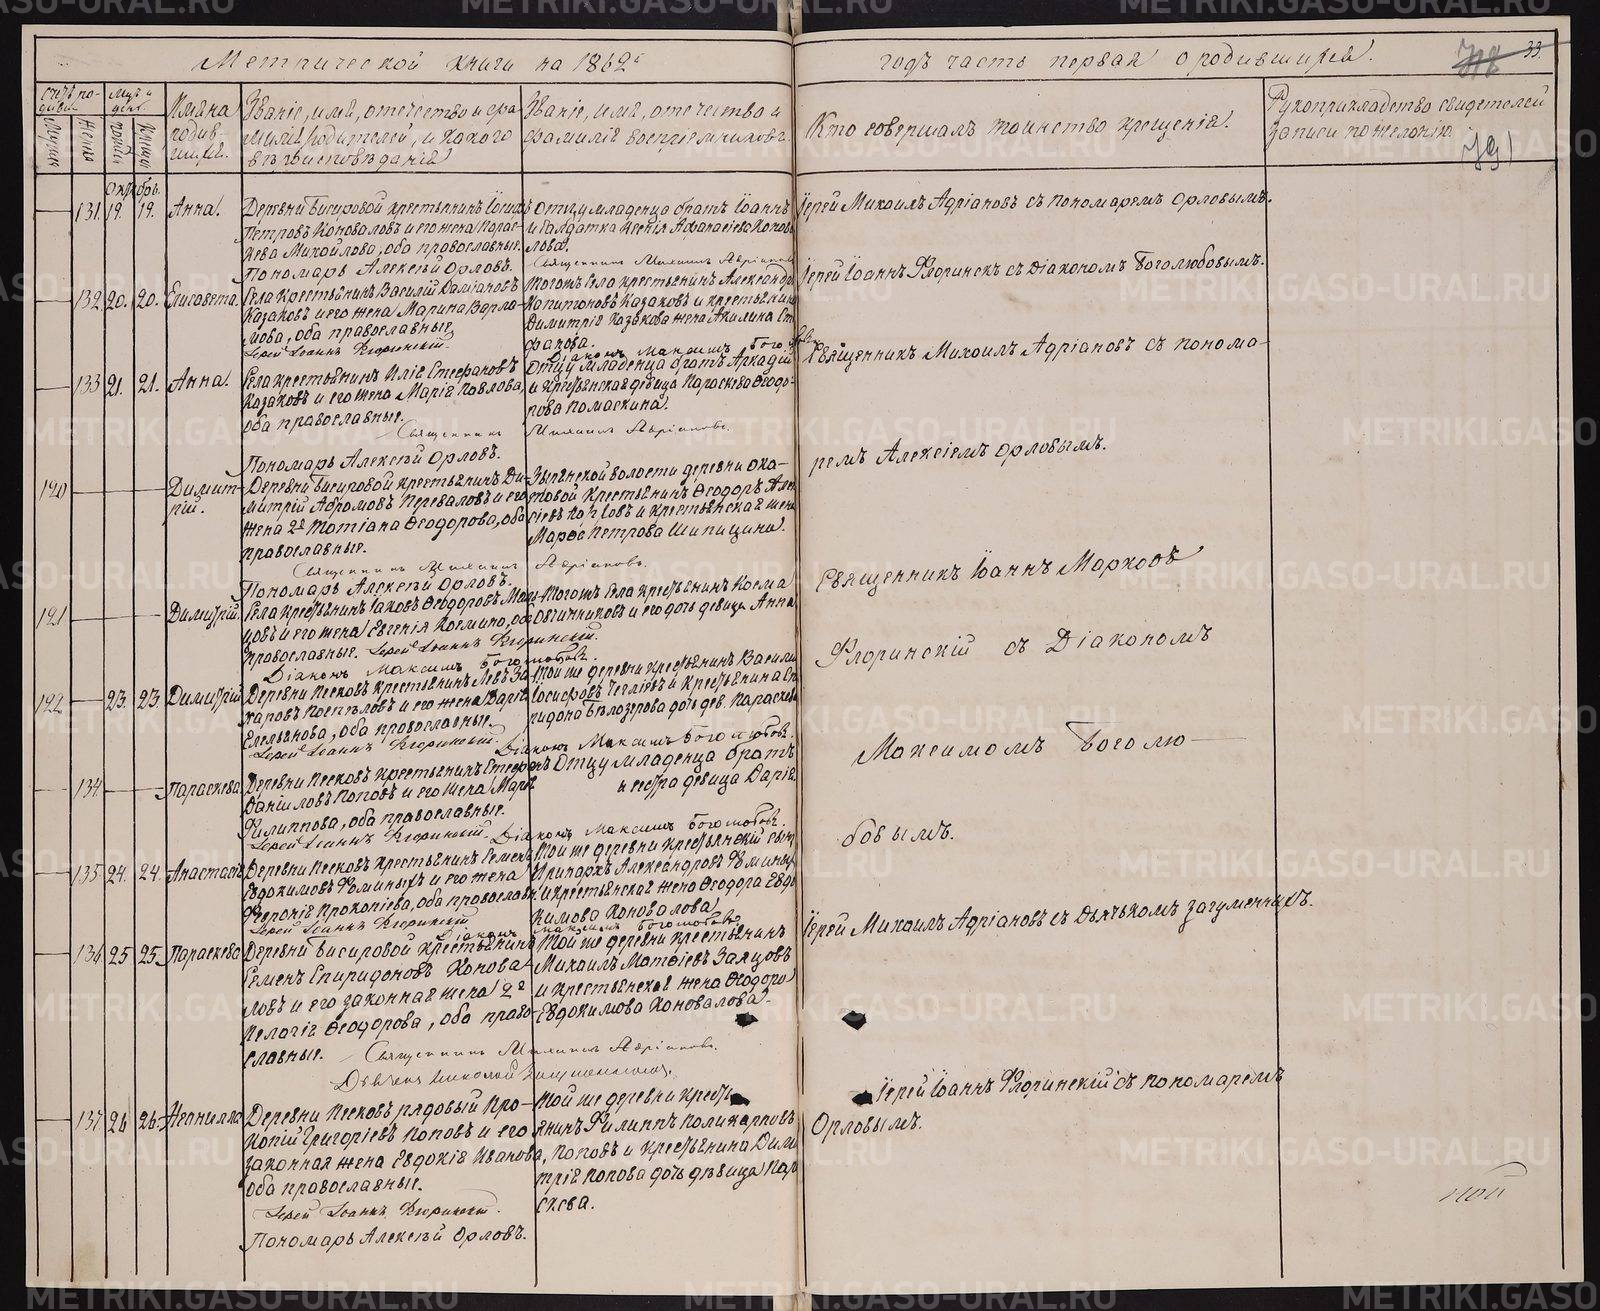 Метрической книги на 1862й
годъ часть первая о родившихся.
33.
Счетъ ро-
дивш.
Мужеска
Женска
Мцъ и
день
рожден.
крещен.
Имяна
родив-
шихся.
Званіе, имя, отечество и фа-
милія родителей, и какого
вѣроисповѣданія
Званіе, имя, отечество и
фамилія воспріемниковъ.
Кто совершалъ таинство крещенія.
Рукоприкладство свидетелей
записи по желанію
79)
Октябрь.
131. 19. 19. Анна.
Деревни Бисировой крестьянинъ
Петровъ Коноваловъ и его жена Парас-
кева Михайлова, оба православные.
Пономарь Алексѣй Орловъ.
Отцу младенца братъ Іоаннъ
и солдатка Ксенія Афанасіева Коно-
лова.
Священникъ Михаилъ Адріановъ
Іерей Михаилъ Адріановъ съ пономаремъ Орловымъ.
132. 20. 20. Елисавета.
Села крестьянинъ Василій Даміановъ
Казаковъ и его жена Марина Варла-
мова, оба православные.
Іерей Іоаннъ Флоринскій.
Тогожъ села крестьянинъ Александръ
Капитоновъ Казаковъ и крестьянина
Димитрія Казакова жена Акилина Сте-
фанова.
Діаконъ Максимъ Боголюбовъ
Іерей Іоаннъ Флоринскъ съ діакономъ Боголюбовымъ.
133 21. 21. Анна.
Села крестьянинъ Илія Стефановъ
Казаковъ и его жена Марія Павлова,
оба православные.
Священникъ Михаилъ Адріановъ.
Пономарь Алексѣй Орловъ.
Отцу младенца братъ Аркадій
и крестьянская девица Параскева Ѳеодо-
рова Помаскина.
Священникъ Михаилъ Адріановъ съ понома-
ремъ Алексіемъ Орловымъ.
120 Димит-
рій.
Деревни Бисировой крестьянинъ Ди-
митрій Абрамовъ Переваловъ и его
жена 2я Татіана Ѳеодорова, оба
православные.
Священникъ Михаилъ Адріановъ.
Пономарь Алексѣй Орловъ.
волости деревни
крестьянинъ Ѳеодоръ Алек-
сіевъ и крестьянская жена
Марѳа Петрова Шипицина.
Священникъ Іоаннъ
121 Димитрій.
Села крестьянинъ Іаковъ Ѳеодоровъ
и его жена Евгенія Космина, оба
православные. Іерей Іоаннъ Флоринскій.
Діаконъ Максимъ Боголюбовъ.
Тогожъ села крестьянинъ Косма
Овчинниковъ и его дочь девица Анна.
Флоринскій съ Діакономъ
122 23. 23. Димитрій
Деревни Песковъ крестьянинъ Левъ За-
харовъ Поспѣловъ и его жена Дарія
Емельянова, оба православные.
Іерей Іоаннъ Флоринскій. Діаконъ Максимъ Боголюбовъ.
Той же деревни крестьянинъ Василій
Іосифовъ и крестьянина Спи-
ридона Бѣлозерова дочь дев. Параскева
Максимомъ Боголю-
134 Параскева.
Деревни Песковъ крестьянинъ Стефанъ
Даніиловъ Поповъ и его жена Марѳа
Филиппова, оба православные.
Іерей Іоаннъ Флоринскій. Діаконъ Максимъ Боголюбовъ.
Отцу младенца братъ
и сестра девица Дарія.
бовымъ.
135 24. 24. Анастасія
Деревни Песковъ крестьянинъ Семенъ
Евдокимовъ Фоминыхъ и его жена
Февронія Прокопіева, оба православн.
Іерей Іоаннъ Флоринскій
Діаконъ Максимъ Боголюбовъ
Той же деревни крестьянскій сынъ
Иринархъ Александровъ Фоминыхъ
и крестьянская жена Ѳеодора Евдо-
кимова Коновалова.
Іерей Михаилъ Адріановъ съ Дьячкомъ Загуменныхъ.
134 25 25. Параскева
Деревни Бисировой крестьянинъ
Семенъ Спиридоновъ Конова-
ловъ и его законная жена 2я
Пелагія Ѳеодорова, оба право-
славные.
Священникъ Михаилъ Адріановъ.
Дьячекъ Николай
Той же деревни крестьянинъ
Михаилъ Матѳіевъ Заяцовъ
и крестьянская жена Ѳеодора
Евдокимова Коновалова.
137 26 26. Неонилла
Деревни Песковъ рядовый Про-
копій Григоріевъ Поповъ и его
законная жена Евдокія Иванова,
оба православные.
Іерей Іоаннъ Флоринскій.
Пономарь Алексѣй Орловъ.
Той же деревни кресть-
янинъ Филиппъ Поликарповъ
Поповъ и крестьянина Дими-
трія Попова дочь дѣвица Пар
скева.
Іерей Іоаннъ Флоринскій съ пономаремъ
Орловымъ.
METRIKI.GASO-URAL.RU